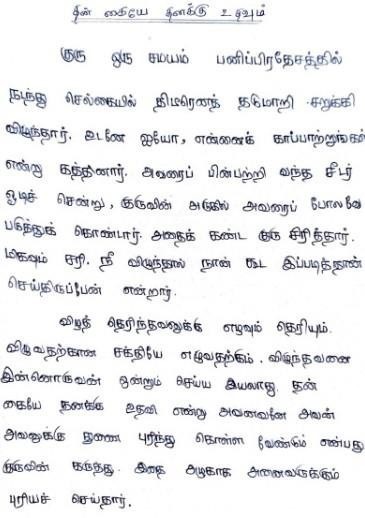 தன் கையே தனக்கு உதவும்
குரு ஒரு சமயம் பனிப்பிரதேசத்தில்
நடந்து செல்கையில் திடீரெனத் தடுமாறி சறுக்கி
விழுந்தார். உடனே ஐயோ, என்னைக் காப்பாற்றுங்கள்
என்று கத்தினார். அவரைப் பின்பற்றி வந்த சீடர்
ஓடிச் சென்று, குருவின் அருகில் அவரைப் போலவே
படுத்துக் கொண்டார். அதைக் கண்ட குரு சிரித்தார்.
மிகவும் சரி. நீ விழுந்தால் நான் கூட இப்படித்தான்
செய்திருப்பேன் என்றார்.
விழத் தெரிந்தவனுக்கு எழவும் தெரியும்.
விழுவதற்கான சக்தியே எழுவதற்கும். விழுந்தவனை
இன்னொருவன் ஒன்றும் செய்ய இயலாது. தன்
கையே தனக்கு உதவி என்று அவனவனே அவன்
அவனுக்கு துணை புரிந்து கொள்ள வேண்டும் என்பது
குருவின் கருத்து. இதை அழகாக அனைவருக்கும்
புரியச் செய்தார்.